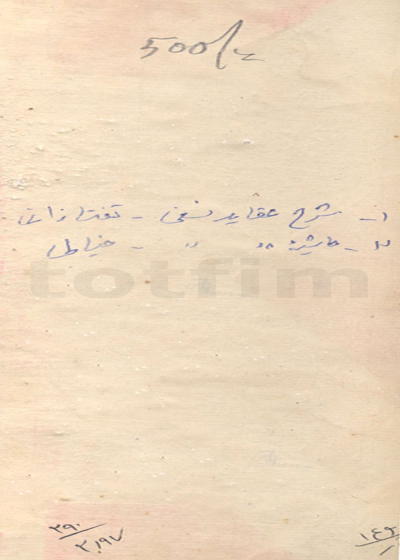 500/-
۱ - شرح عقاید نسفی - تفتازانی
۲ - حاشیة " " - خیالی
totfim
۲۹۰/۲,۱۹۷